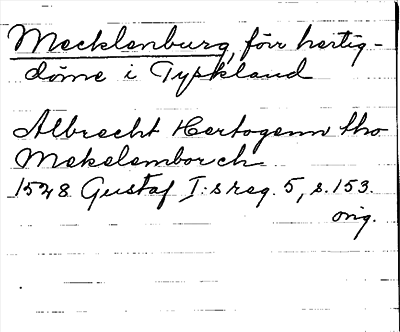 Mecklenburg, förr hertig-
döme i Tyskland
Albrecht Hertogenn tho
Mekelemborch
1528. Gustaf I:s reg. 5, s. 153.
orig.